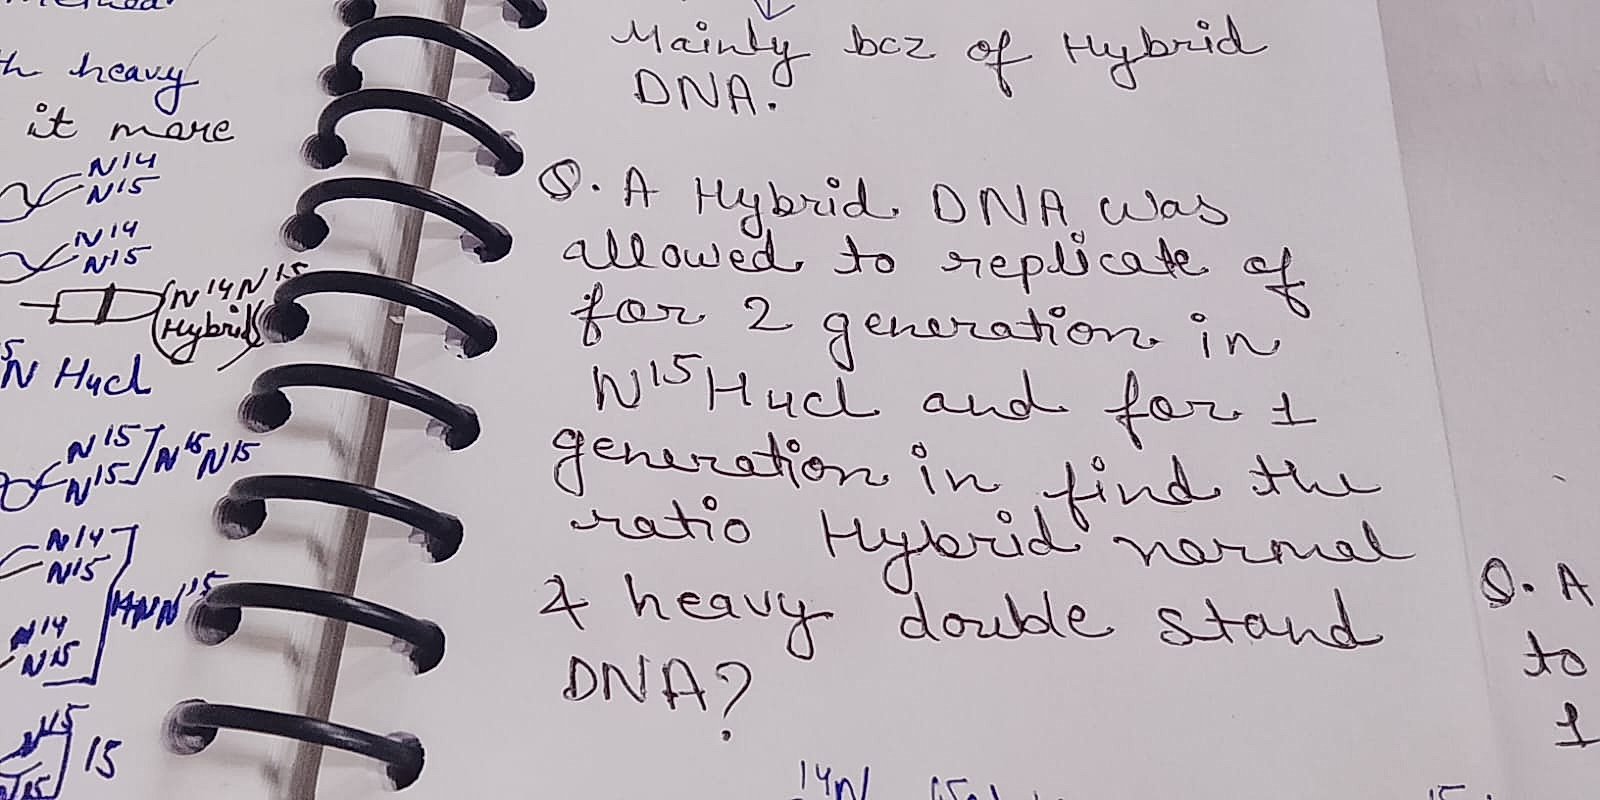 th heavy
it more
N14
N15
N14
N15
(N14N15
(Hybrid)
5N Hucl
N15
N15] N15N15
N14
N15
N14
N15
N15] 15
N15
Mainly bcz of Hybrid
DNA.
Q. A Hybrid DNA was
allowed to replicate of
for 2 generation in
N15 Hucl and for 1
generation in find the
ratio Hybrid normal
& heavy double stand
DNA?
14N
Q. A
to
1